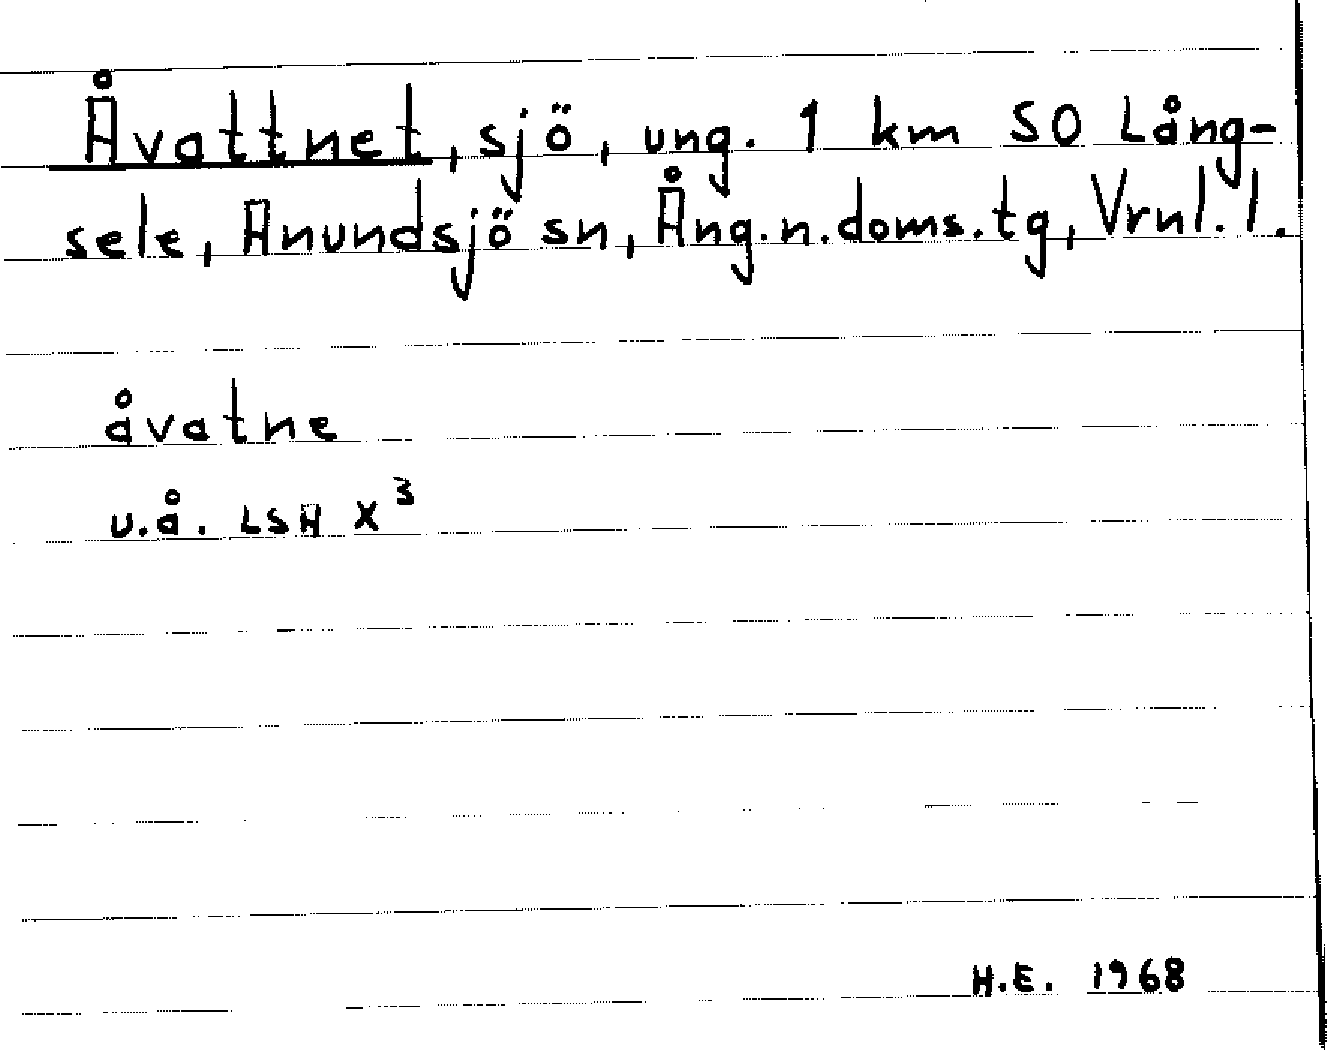 Åvattnet, sjö, ung. 1 km SO Lång-
sele, Anundsjö sn, Ång.n.doms.tg, Vrnl. l.
åvatne
u.å. LSH X³
H.E. 1968